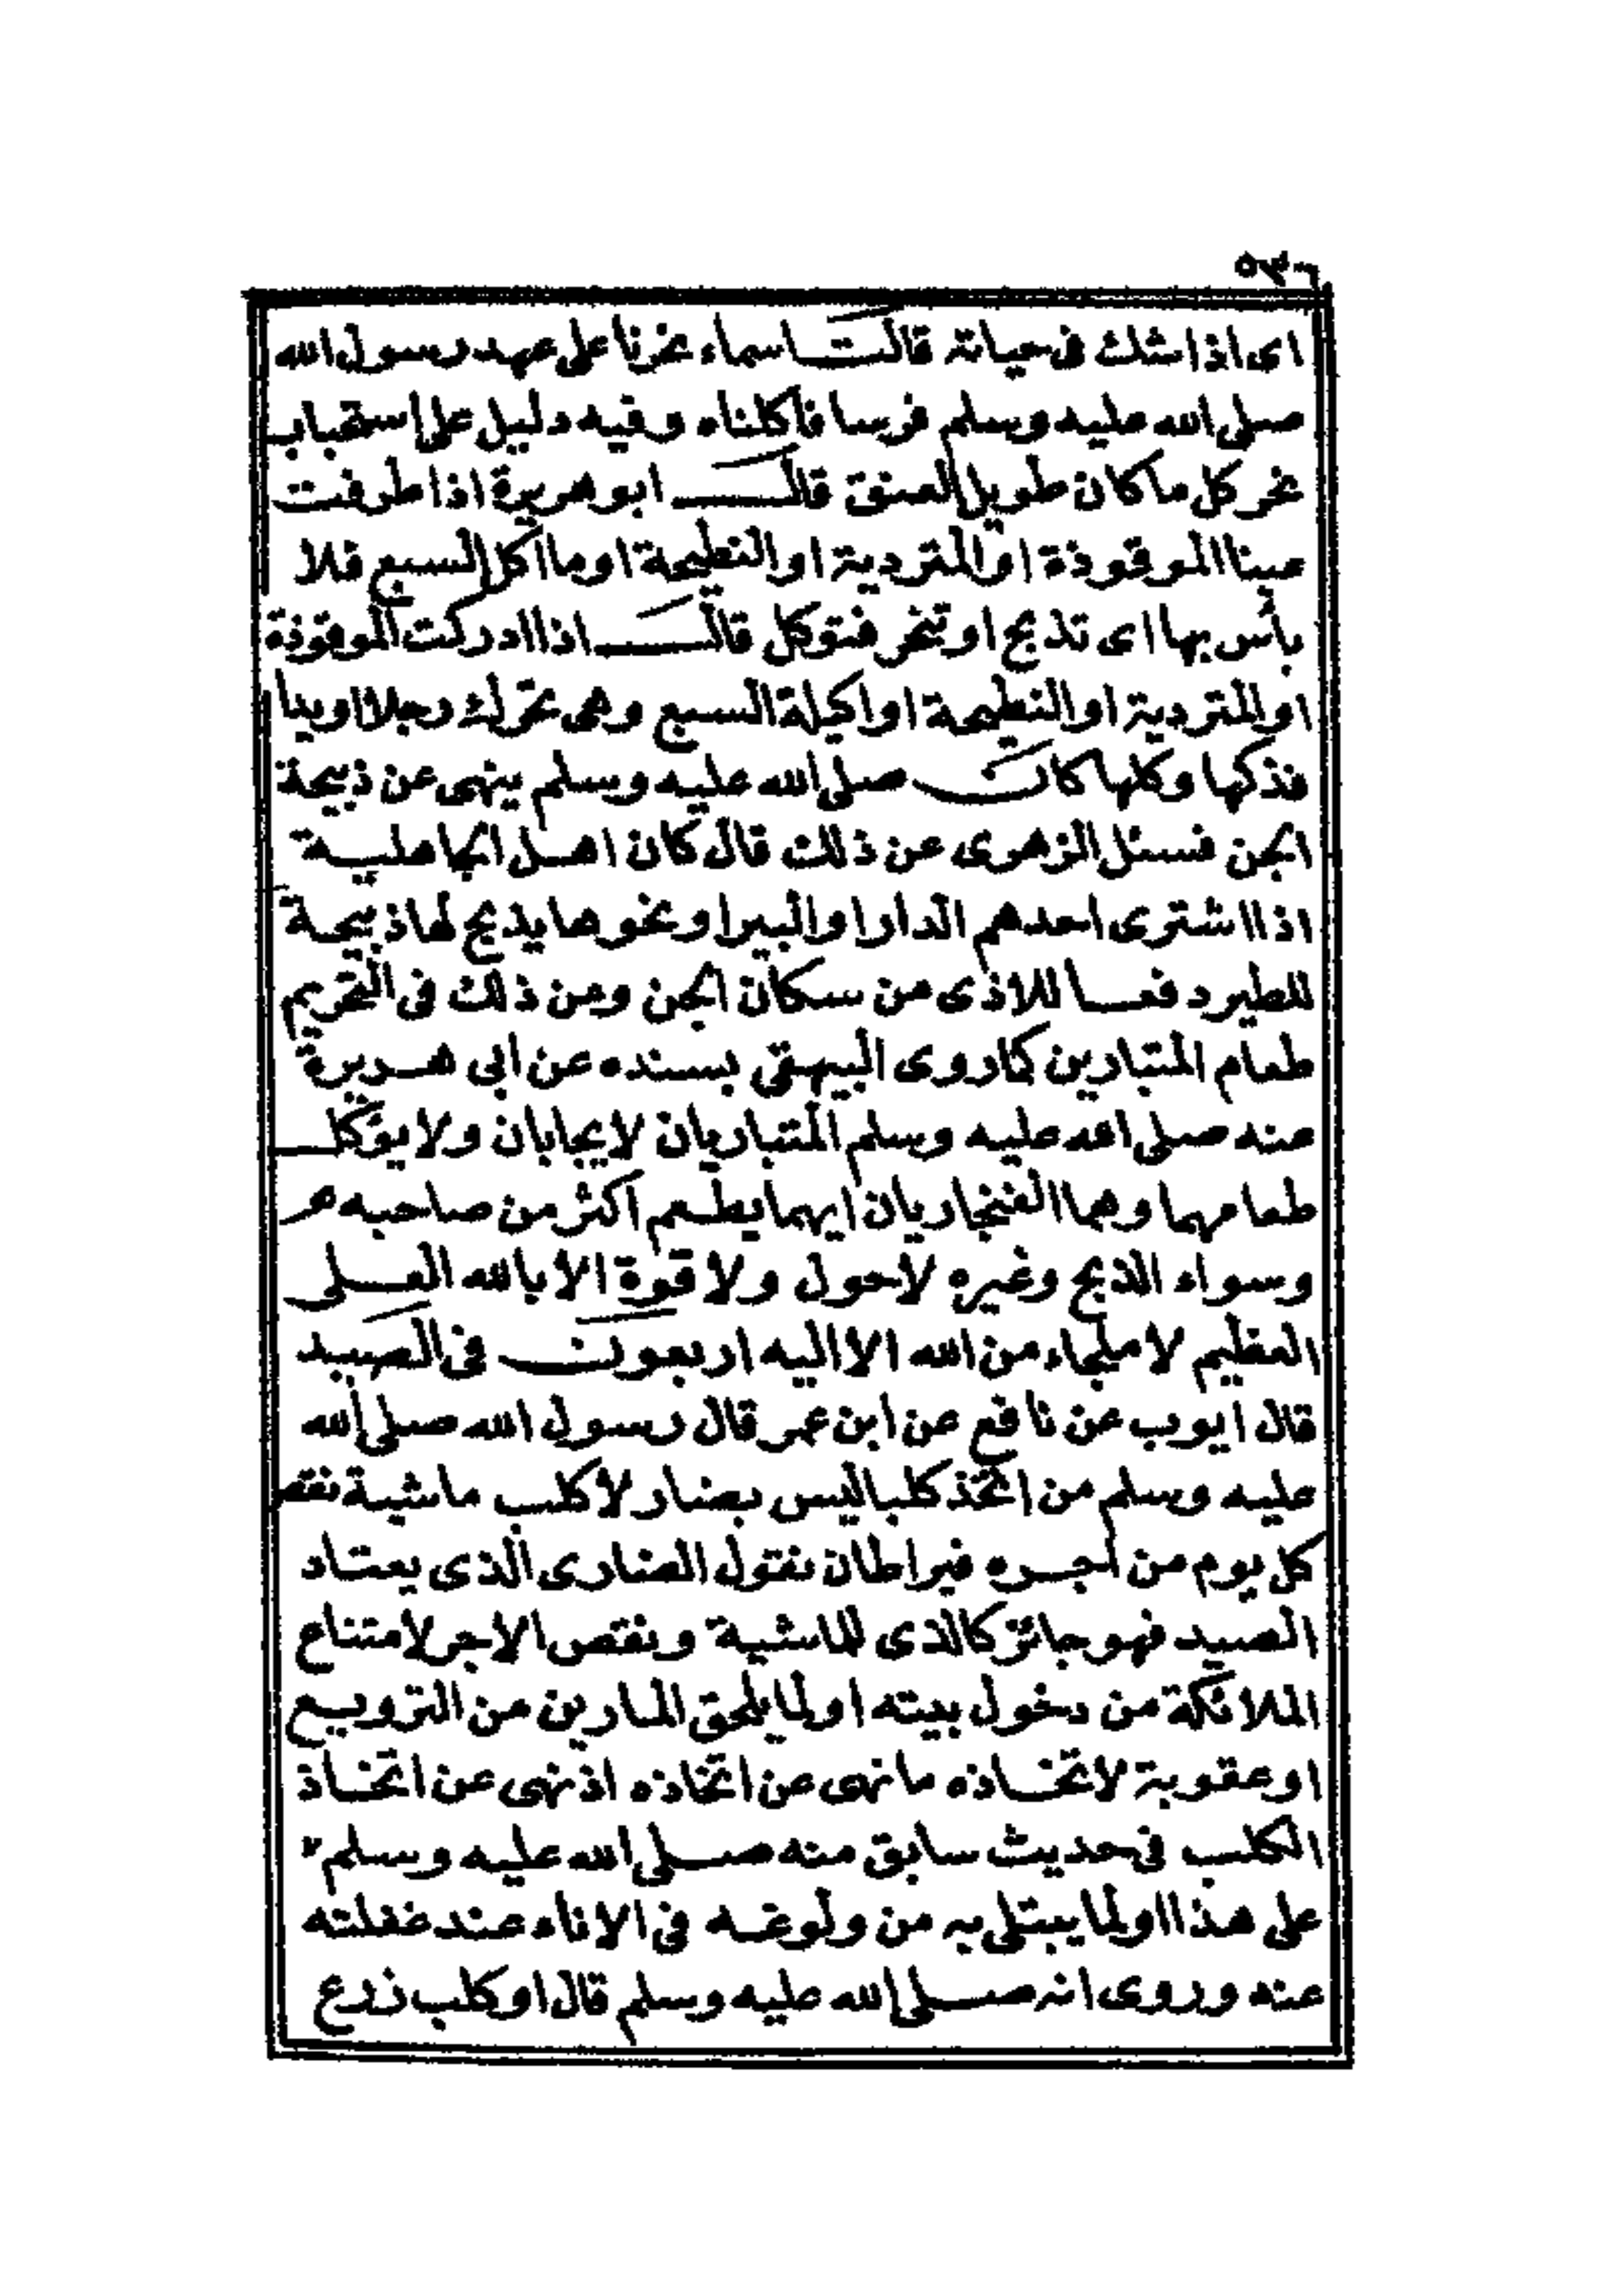 ٥٣٦
اى اذا شك فى حياته قالت اسماء نحرنا على عهد رسول الله
صلى الله عليه وسلم فرسا فاكلناه وفيه دليل على استحباب
نحر كل ما كان طويل العنق قال ابو هريرة اذا طرفت
عينا الموقوذة او المتردية او النطيحة او ما اكل السبع فلا
بأس بها اى تذبح او تنحر فتوكل قال اذا ادركت الموقوذة
او المتردية او النطيحة او اكيلة السبع وهى تحرك رجلا او يدا
فذكها وكلها كان صلى الله عليه وسلم ينهى عن ذبيحة
الجن فسئل الزهرى عن ذلك قال كان اهل الجاهلية
اذا اشترى احدهم الدار او البير او نحوها يذبح لها ذبيحة
للطير دفعا للاذى من سكان الجن ومن ذلك فى التحريم
طعام المتبارين كما روى البيهقى بسنده عن ابى هريرة
عنه صلى الله عليه وسلم المتباريان لا يجابان ولا يؤكل
طعامهما وهما الفنجاريان ايهما يطعم اكثر من صاحبه هو
وسواء الذبح وغيره لاحول ولا قوة الا بالله العلى
العظيم لا ملجاء من الله الا اليه اربعون فى الصيد
قال ايوب عن نافع عن ابن عمر قال رسول الله صلى الله
عليه وسلم من اتخذ كلبا ليس بضار لا كلب ماشية نقص
كل يوم من اجره قيراطان نقول الضارى الذى يعتاد
الصيد فهو جائز كالذى للماشية ونقص الاجر لامتناع
الملائكة من دخول بيته او لما يلحق المارين من الترويع
او عقوبة لاتخاذه ما نهى عن اتخاذه اذ نهى عن اتخاذ
الكلب فى حديث سابق منه صلى الله عليه وسلم
على هذا او لما يبتلى به من ولوغه فى الاناء عند غفلته
عنه وروى انه صلى الله عليه وسلم قال او كلب زرع